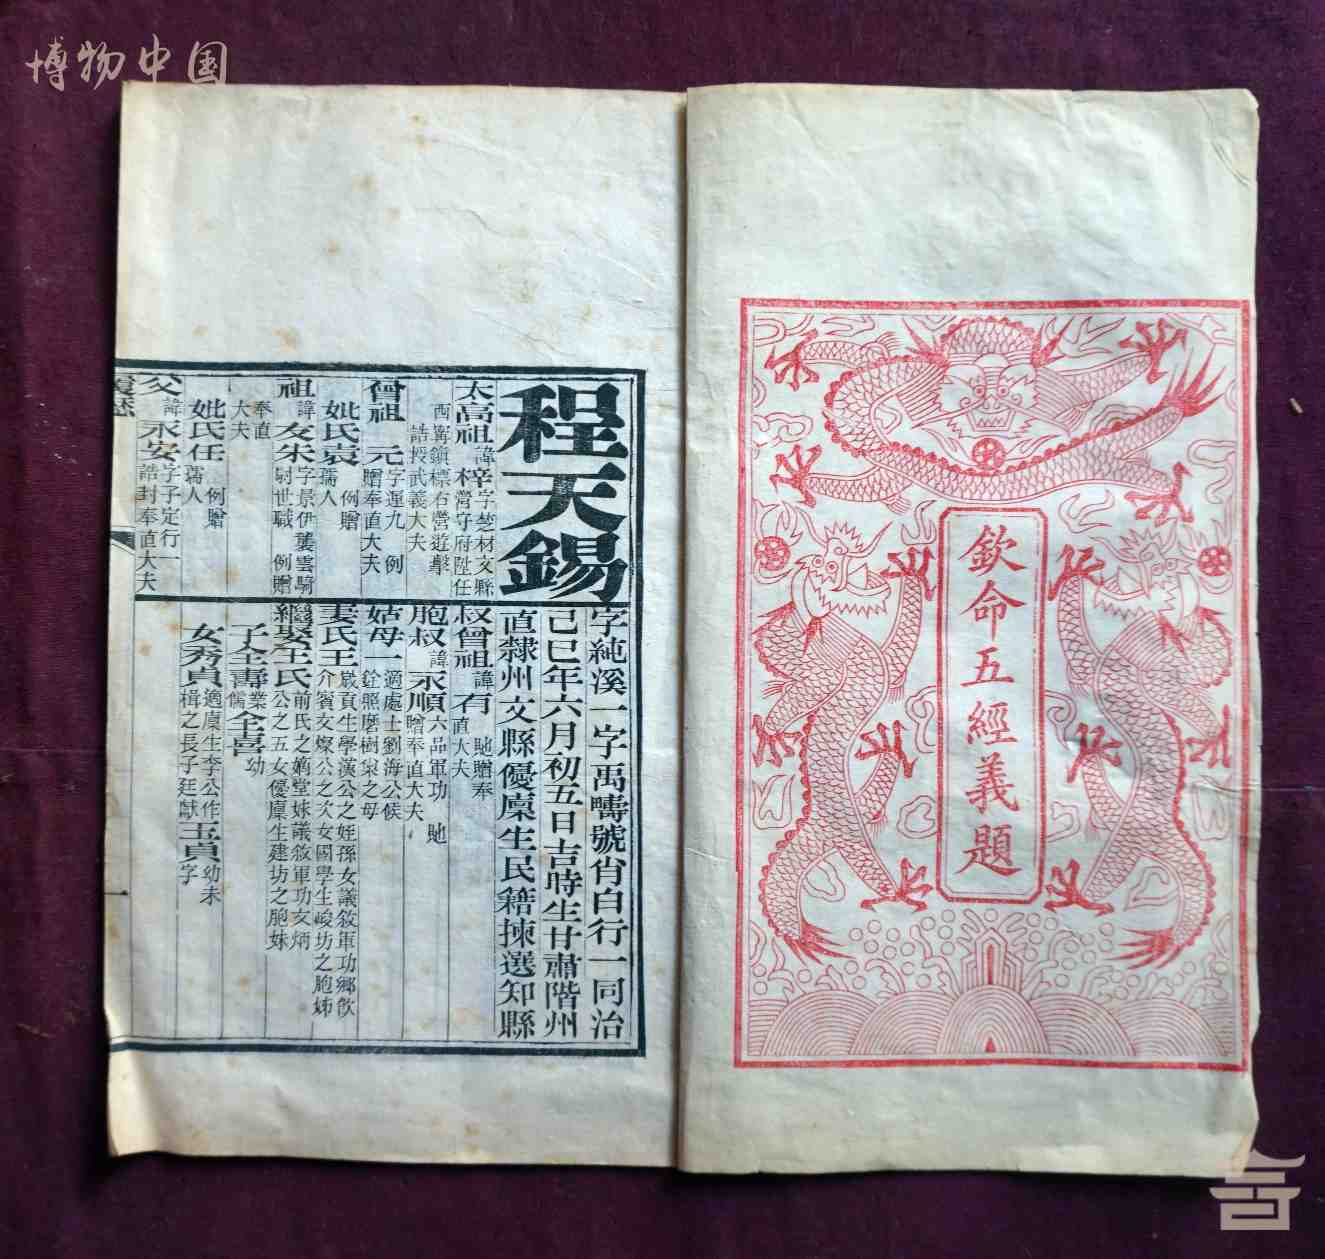 博物中国
欽命五經義題
程天錫
字純溪一字禹疇號肖白行一同治
己巳年六月初五日吉時生甘肅階州
直隸州文縣優廩生民籍揀選知縣
太高祖諱梓字芝材文縣
營守府陞任
西寧鎮標右營遊擊
誥授武義大夫
曾祖 元字運九 例
贈奉直大夫
妣氏袁 例贈
孺人
祖諱友朱字景伊襲雲騎
尉世職 例贈
奉直
大夫
妣氏任 例贈
孺人
父諱永安字子定行一
誥封奉直大夫
叔曾祖諱有 貤贈奉
直大夫
胞叔諱永順六品軍功 貤
贈奉直大夫
姑母一適處士劉海公候
銓照磨樹棠之母
妻氏王歲貢生學漢公之姪孫女議敘軍功鄉飲
介賓文燦公之次女國學生峻坊之胞姊
繼娶王氏前氏之嫡堂妹議敘軍功文炳
公之五女優廩生建坊之胞妹
子全壽業儒全喜幼
女秀貞適廩生李公作
楫之長子廷獻玉貞幼未
字
一
言